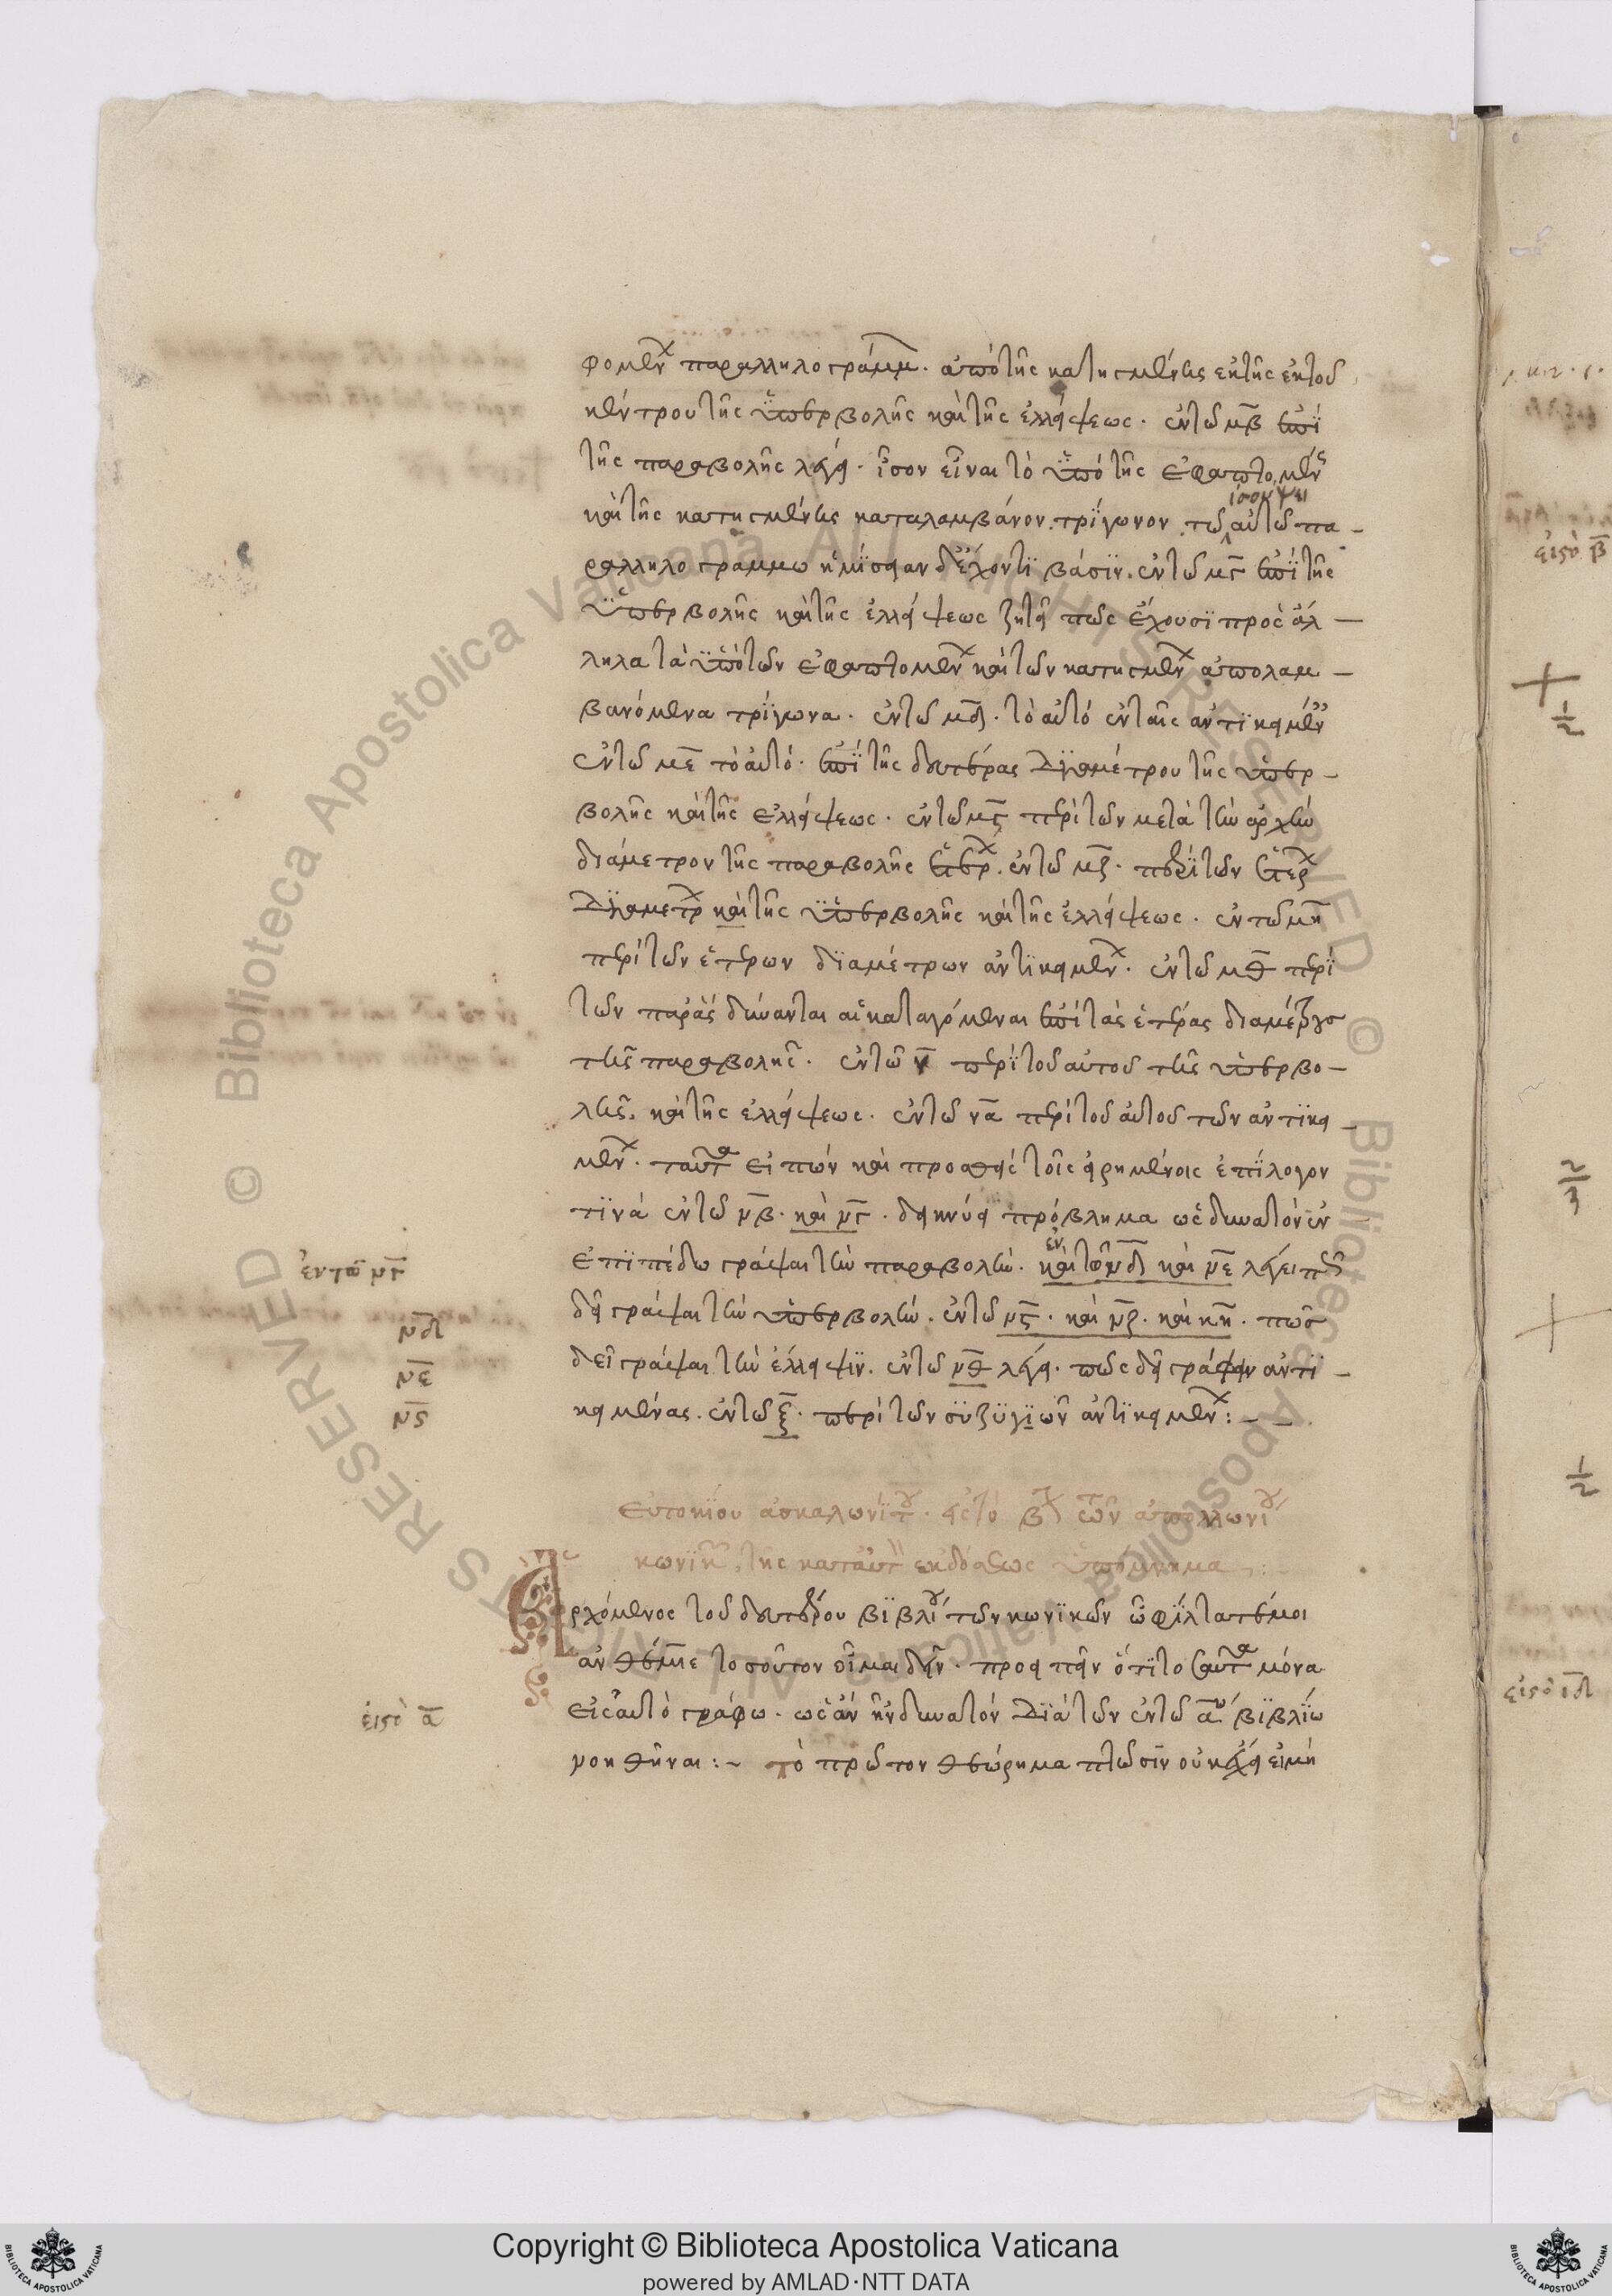 φομεν παραλληλογράμμ. ἀπὸ τῆς κατηγμένης ἐκ τῆς ἐκ τοῦ
κέντρου τῆς ὑπερβολῆς καὶ τῆς ἐλλείψεως. ἐν τῶ μβ ἐπὶ
τῆς παραβολῆς λέγει. ἴσον εἶναι τὸ ὑπὸ τῆς ἐφαπτομένης
καὶ τῆς κατηγμένης καταλαμβάνον τρίγωνον τῶ ἰσοϋψεῖ αὐτῶ πα
ραλληλογράμμω ἡμίσειαν δ' ἔχοντι βάσιν. ἐν τῶ μγ ἐπὶ τῆς
ὑπερβολῆς καὶ τῆς ἐλλείψεως ζητεῖ πῶς ἔχουσι πρὸς ἄλ
ληλα τὰ ὑπὸ τῶν ἐφαπτομεν καὶ τῶν κατηγμεν ἀπολαμ
βανόμενα τρίγωνα. ἐν τῶ μδ. τὸ αὐτὸ ἐν ταῖς ἀντικειμέν
ἐν τῶ με τὸ αὐτό. ἐπὶ τῆς δευτέρας διαμέτρου τῆς ὑπερ
βολῆς καὶ τῆς ἐλλείψεως. ἐν τῶ μς περὶ τῶν μετὰ τὴν ἀρχὴν
διάμετρον τῆς παραβολῆς ἑτερ. ἐν τῶ μζ. περὶ τῶν ἑτερ
διαμετρ καὶ τῆς ὑπερβολῆς καὶ τῆς ἐλλείψεως. ἐν τῶ μη
περὶ τῶν ἑτέρων διαμέτρων ἀντικειμεν. ἐν τῶ μθ περὶ
τῶν παρ' ἃς δύνανται αἱ καταγόμεναι ἐπὶ τὰς ἑτέρας διαμέτρους
τῆς παραβολῆς. ἐν τῶ ν περὶ τοῦ αὐτοῦ τῆς ὑπερβο
λῆς. καὶ τῆς ἐλλείψεως. ἐν τῶ να περὶ τοῦ αὐτοῦ τῶν ἀντικει
μεν. ταῦτα εἰπὼν καὶ προσθεὶς τοῖς εἰρημένοις ἐπίλογον
τινὰ ἐν τῶ νβ. καὶ νγ. δεικνύει πρόβλημα ὡς δυνατὸν ἐν
ἐπιπέδω γράψαι τὴν παραβολήν. καὶ ἐν τῶ νδ καὶ νε λέγει πῶς
δεῖ γράψαι τὴν ὑπερβολήν. ἐν τῶ νς. καὶ νζ. καὶ νη. πῶς
δεῖ γράψαι τὴν ἔλλειψιν. ἐν τῶ νθ λέγει. πῶς δεῖ γράφειν ἀντι
κειμένας. ἐν τῶ ξ. περὶ τῶν συζυγιῶν ἀντικειμεν:–
ἐν τῶ νγ
νδ
νε
νς
Εὐτοκίου ἀσκαλωνίτου. εἰς τὸ β τῶν ἀπολλωνίου
κωνικ. τῆς κατ' αὐτ ἐκδόσεως ὑπόμνημα:
Ἀρχόμενος τοῦ δευτέρου βιβλίου τῶν κωνικῶν ὦ φίλτατέ μοι
ἀνθέμιε τοσοῦτον οἶμαι δεῖν. προειπεῖν ὅτι τοσαῦτα μόνα
εἰς αὐτὸ γράφω. ὡς ἂν ἦν δυνατὸν διὰ τῶν ἐν τῶ αω βιβλίω
νοηθῆναι:~ τὸ πρῶτον θεώρημα πτῶσιν οὐκ ἔχει εἰ μὴ
εἰς τὸ α
εἰς τὸ β
1/2
2/3
1/2
εἰς τὸ ιδ
Copyright © Biblioteca Apostolica Vaticana
powered by AMLAD·NTT DATA